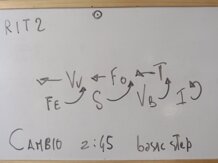 RIT 2
Vv Fo T
FE S VB I
CAMBIO 2:45 basic step